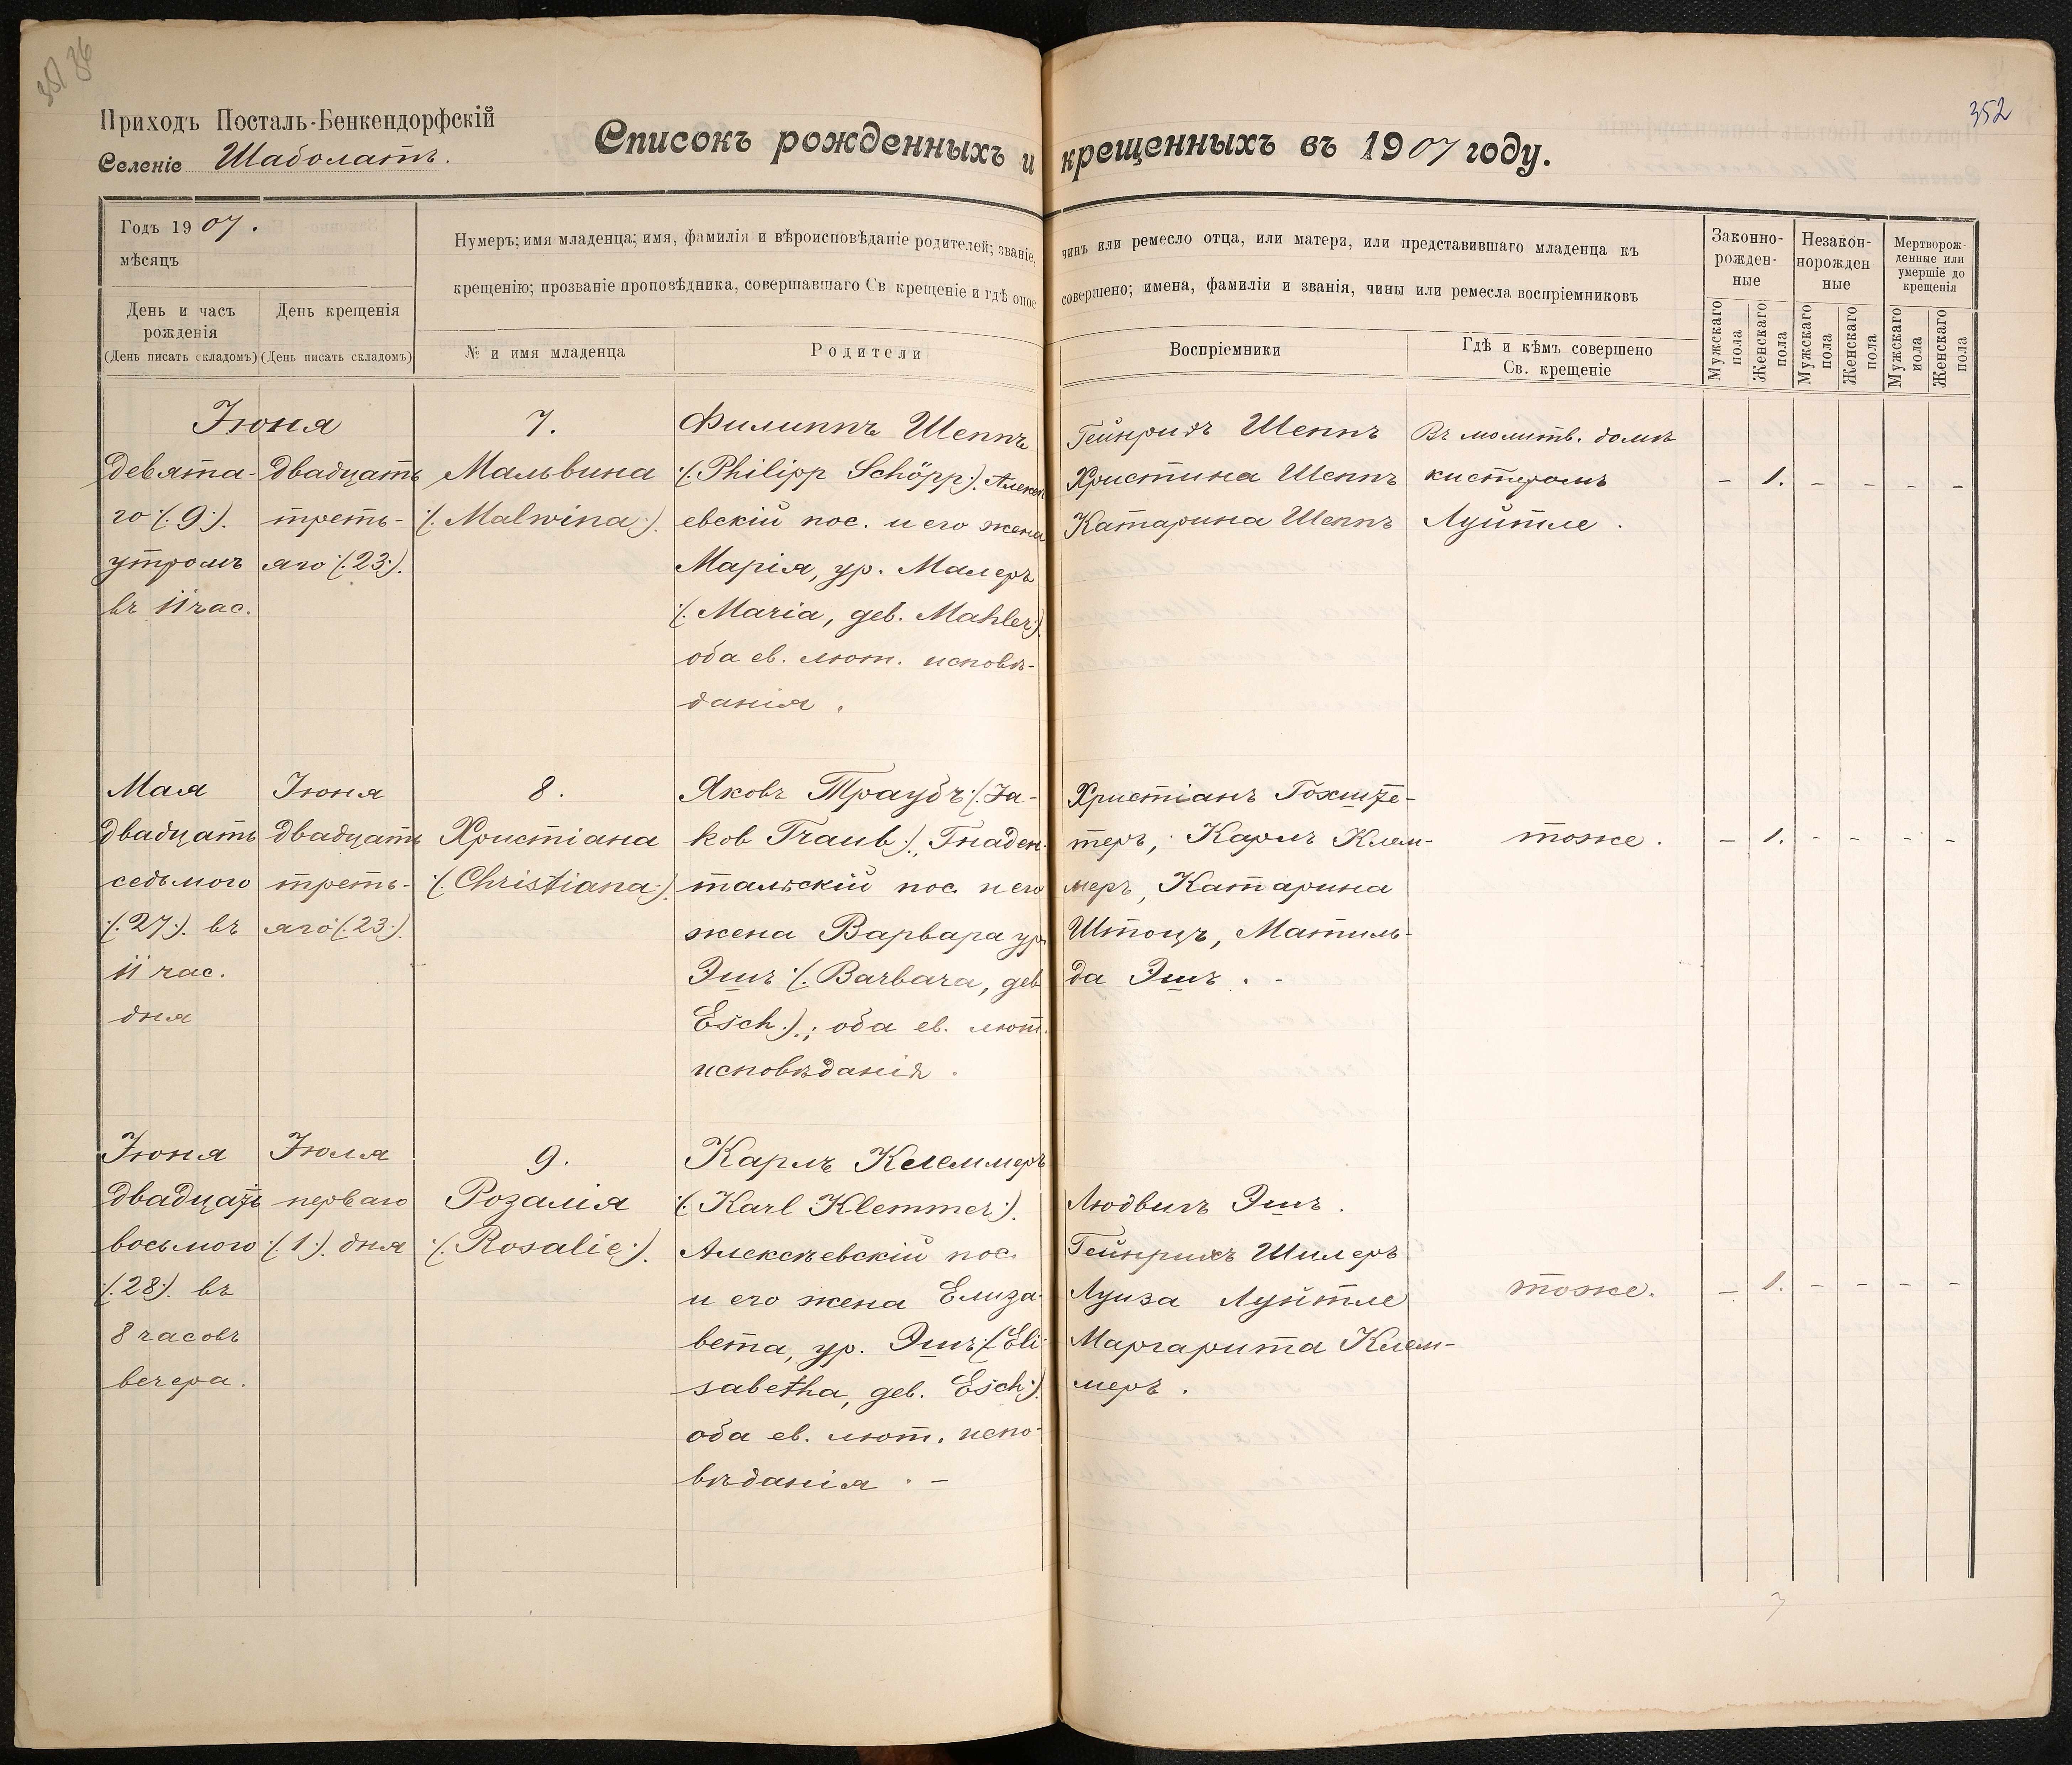 35/36
352
Приходъ Посталь-Бенкендорфскій
Селеніе Шаболатъ.
Списокъ рожденныхъ и крещенныхъ въ 1907 году.
Годъ 1907.
мѣсяцъ
День и часъ рожденія
(День писать складомъ)
День крещенія
(День писать складомъ)
Нумеръ; имя младенца; имя, фамилія и вѣроисповѣданіе родителей; званіе, чинъ или ремесло отца, или матери, или представившаго младенца къ
крещенію; прозваніе проповѣдника, совершавшаго Св крещеніе и гдѣ оное совершено; имена, фамиліи и званія, чины или ремесла воспріемниковъ
№ и имя младенца
Родители
Воспріемники
Гдѣ и кѣмъ совершено
Св. крещеніе
Законно-
рожден-
ные
Незакон-
норожден
ные
Мертворож-
денные или
умершіе до
крещенія
Мужскаго пола
Женскаго пола
Мужскаго пола
Женскаго пола
Мужскаго пола
Женскаго пола
Іюня
девята-
го (. 9 .).
утромъ
въ 11 час.
двадцать
треть-
яго (. 23 .).
7.
Мальвина
(. Malwina .).
Филиппъ Шеппъ
(. Philipp Schöpp .). Алексѣ
евскій пос. и его жена
Марія, ур. Малеръ
(. Maria, geb. Mahler .)
оба ев. лют. исповѣ-
данія.
Гейнрихъ Шеппъ
Христина Шеппъ
Катарина Шеппъ
Въ молитв. домѣ
кистеромъ
Луйтле.
– 1. – – – –
Мая
двадцать
седьмого
(. 27 .). въ
11 час.
дня
Іюня
двадцать
треть-
яго (. 23 .).
8.
Христіана
(. Christiana .).
Яковъ Траубъ (. Ja-
kob Traub .)., Гнаден-
тальскій пос. и его
жена Варвара ур.
Эшъ (. Barbara, geb.
Esch .).; оба ев. лют.
исповѣданія.
Христіанъ Гохште-
теръ, Карлъ Клем-
меръ, Катарина
Штоцъ, Матиль-
да Эшъ. -
тоже.
– 1. – – – –
Іюня
двадцать
восьмого
(. 28 .). въ
8 часовъ
вечера.
Іюля
перваго
(. 1 .). дня
9.
Розалія
(. Rosalie .).
Карлъ Клеммеръ
(. Karl Klemmer .).
Алексѣевскій пос.
и его жена Елиза-
вета, ур. Эшъ (. Eli-
sabetha, geb. Esch .).
оба ев. лют. испо-
вѣданія. –
Людвигъ Эшъ.
Гейнрихъ Шилеръ
Луиза Луйтле
Маргарита Клем-
меръ.
тоже.
– 1. – – – –
3